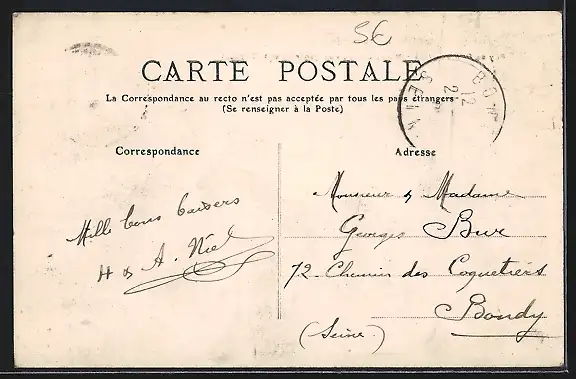 5€
CARTE POSTALE
La Correspondance au recto n'est pas acceptée par tous les pays étrangers
(Se renseigner à la Poste)
Correspondance
Adresse
Mille bons baisers
H & A. Niel
Monsieur & Madame
Georges Bur
72 Chemin des Coquetiers
Bondy
(Seine)